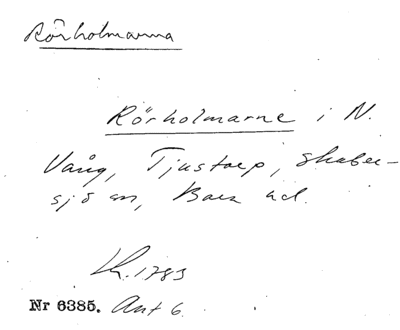 Rörholmarna
Rörholmarne i N.
Vång, Tjustorp, Skaber-
sjö sn, Bara hd.
Kr. 1783
Nr 6385. Ant 6